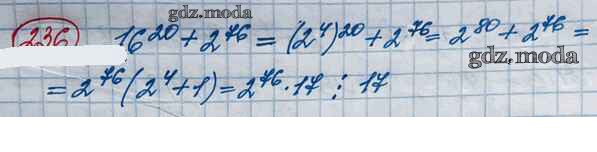 gdz.moda
236 16²⁰ + 2⁷⁶ = (2⁴)²⁰ + 2⁷⁶ = 2⁸⁰ + 2⁷⁶ =
gdz.moda
= 2⁷⁶ (2⁴ + 1) = 2⁷⁶ · 17 ⋮ 17